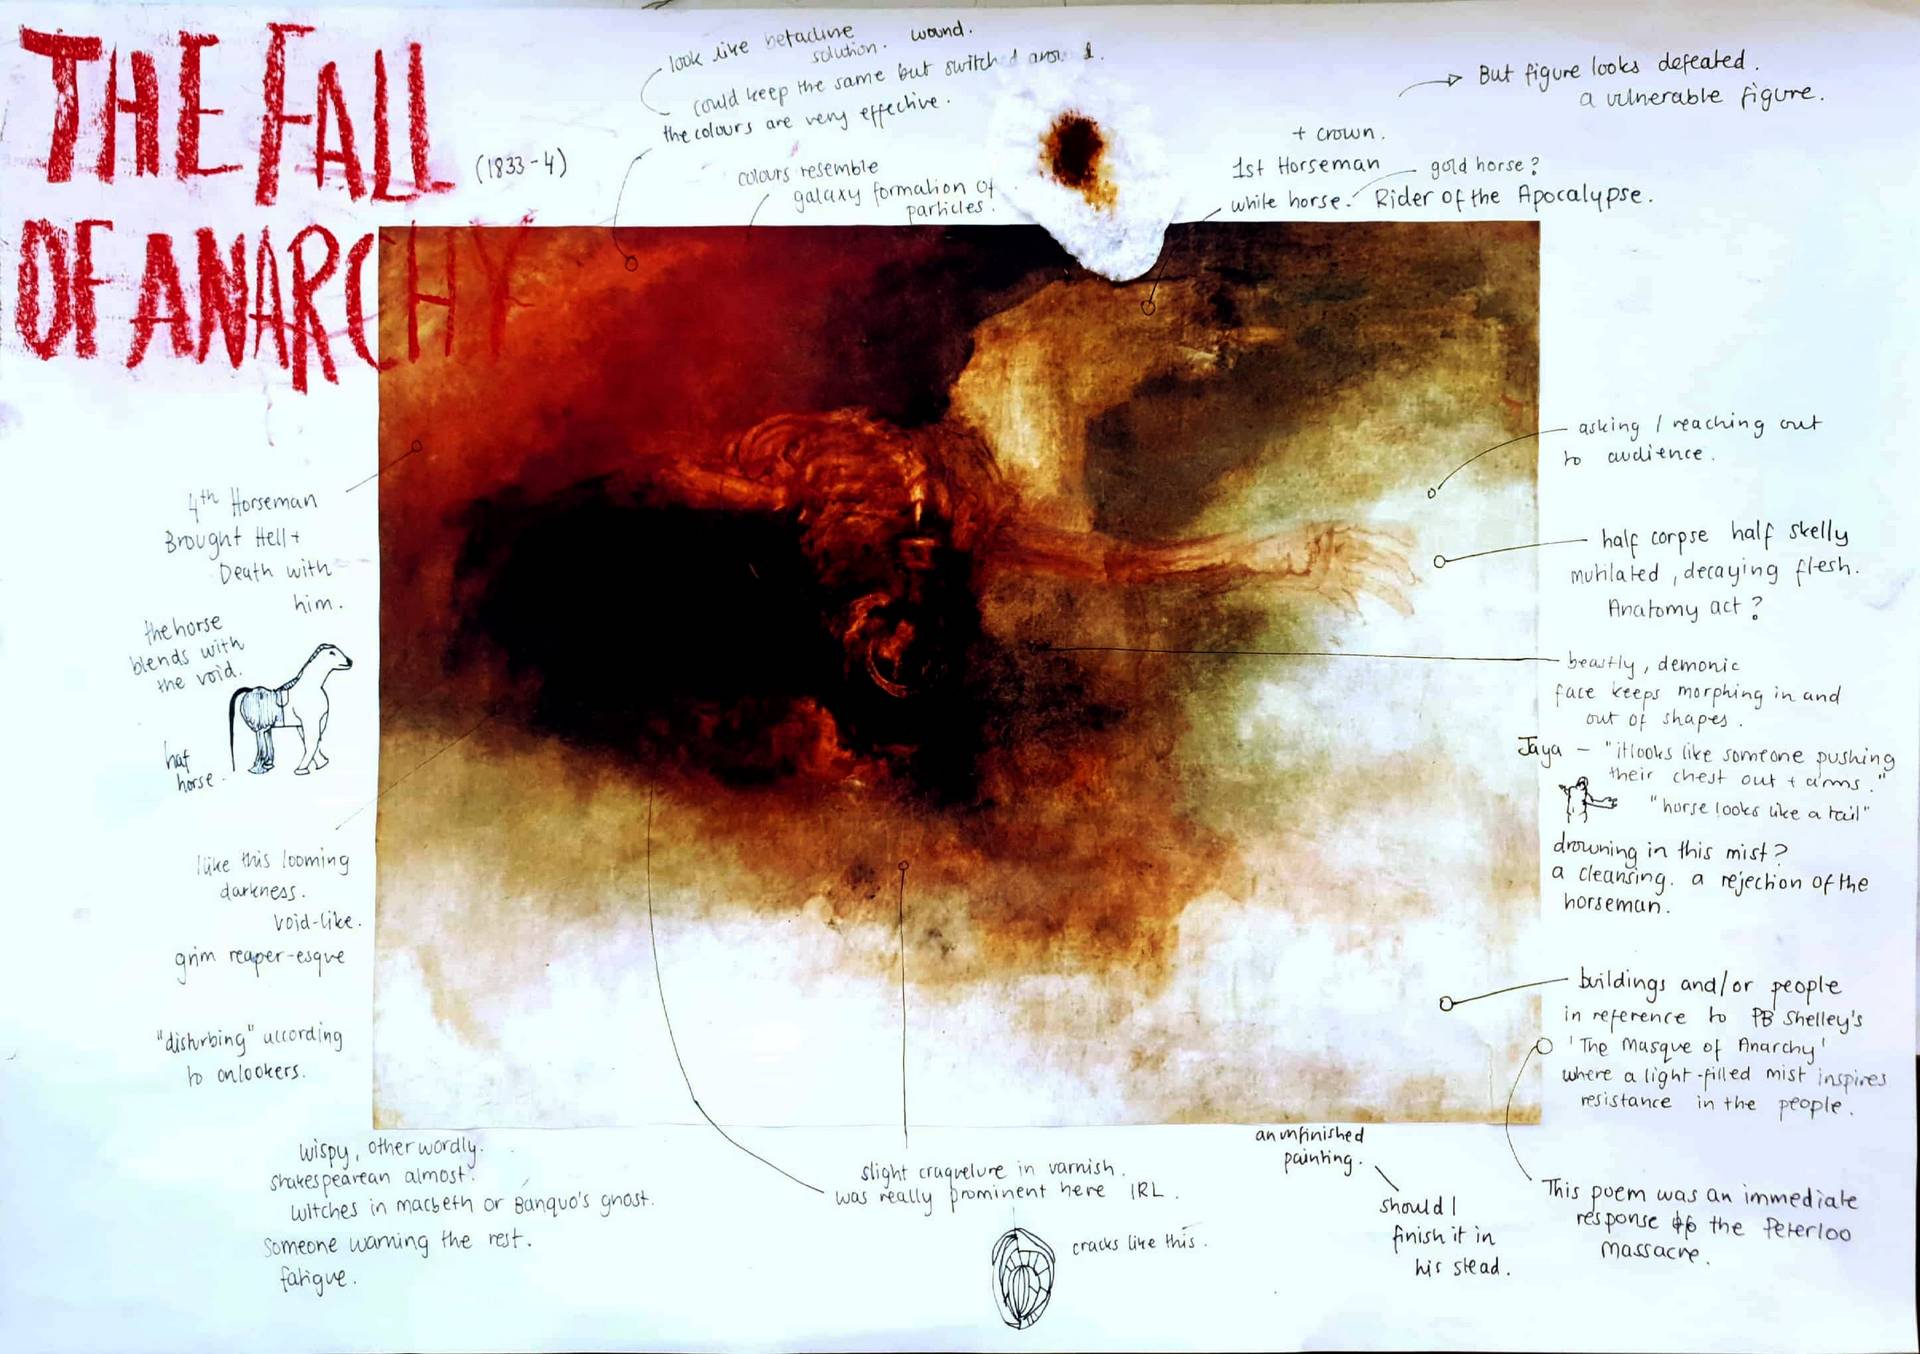 THE FALL
OF ANARCHY
(1833-4)
look like betadine
solution. wound.
could keep the same but switch
the colours are very effective.
colours resemble
galaxy formation of
particles.
But figure looks defeated.
a vulnerable figure.
+ crown.
1st Horseman
gold horse?
white horse. Rider of the Apocalypse.
4th Horseman
Brought Hell +
Death with
him.
the horse
blends with
the void.
haf
horse.
like this looming
darkness.
void-like.
grim reaper-esque
"disturbing" according
to onlookers.
wispy, other wordly.
shakespearean almost.
witches in macbeth or Banquo's ghost.
someone warning the rest.
fatigue.
slight craquelure in varnish.
was really prominent here IRL.
cracks like this.
an unfinished
painting.
should I
finish it in
his stead.
asking / reaching out
to audience.
half corpse half skelly
mutilated, decaying flesh.
Anatomy act?
beastly, demonic
face keeps morphing in and
out of shapes.
Jaya - "it looks like someone pushing
their chest out + arms."
"horse looks like a tail"
drowning in this mist?
a cleansing. a rejection of the
horseman.
buildings and/or people
in reference to PB Shelley's
'The Masque of Anarchy'
where a light-filled mist inspires
resistance in the people.
This poem was an immediate
response to the Peterloo
Massacre.